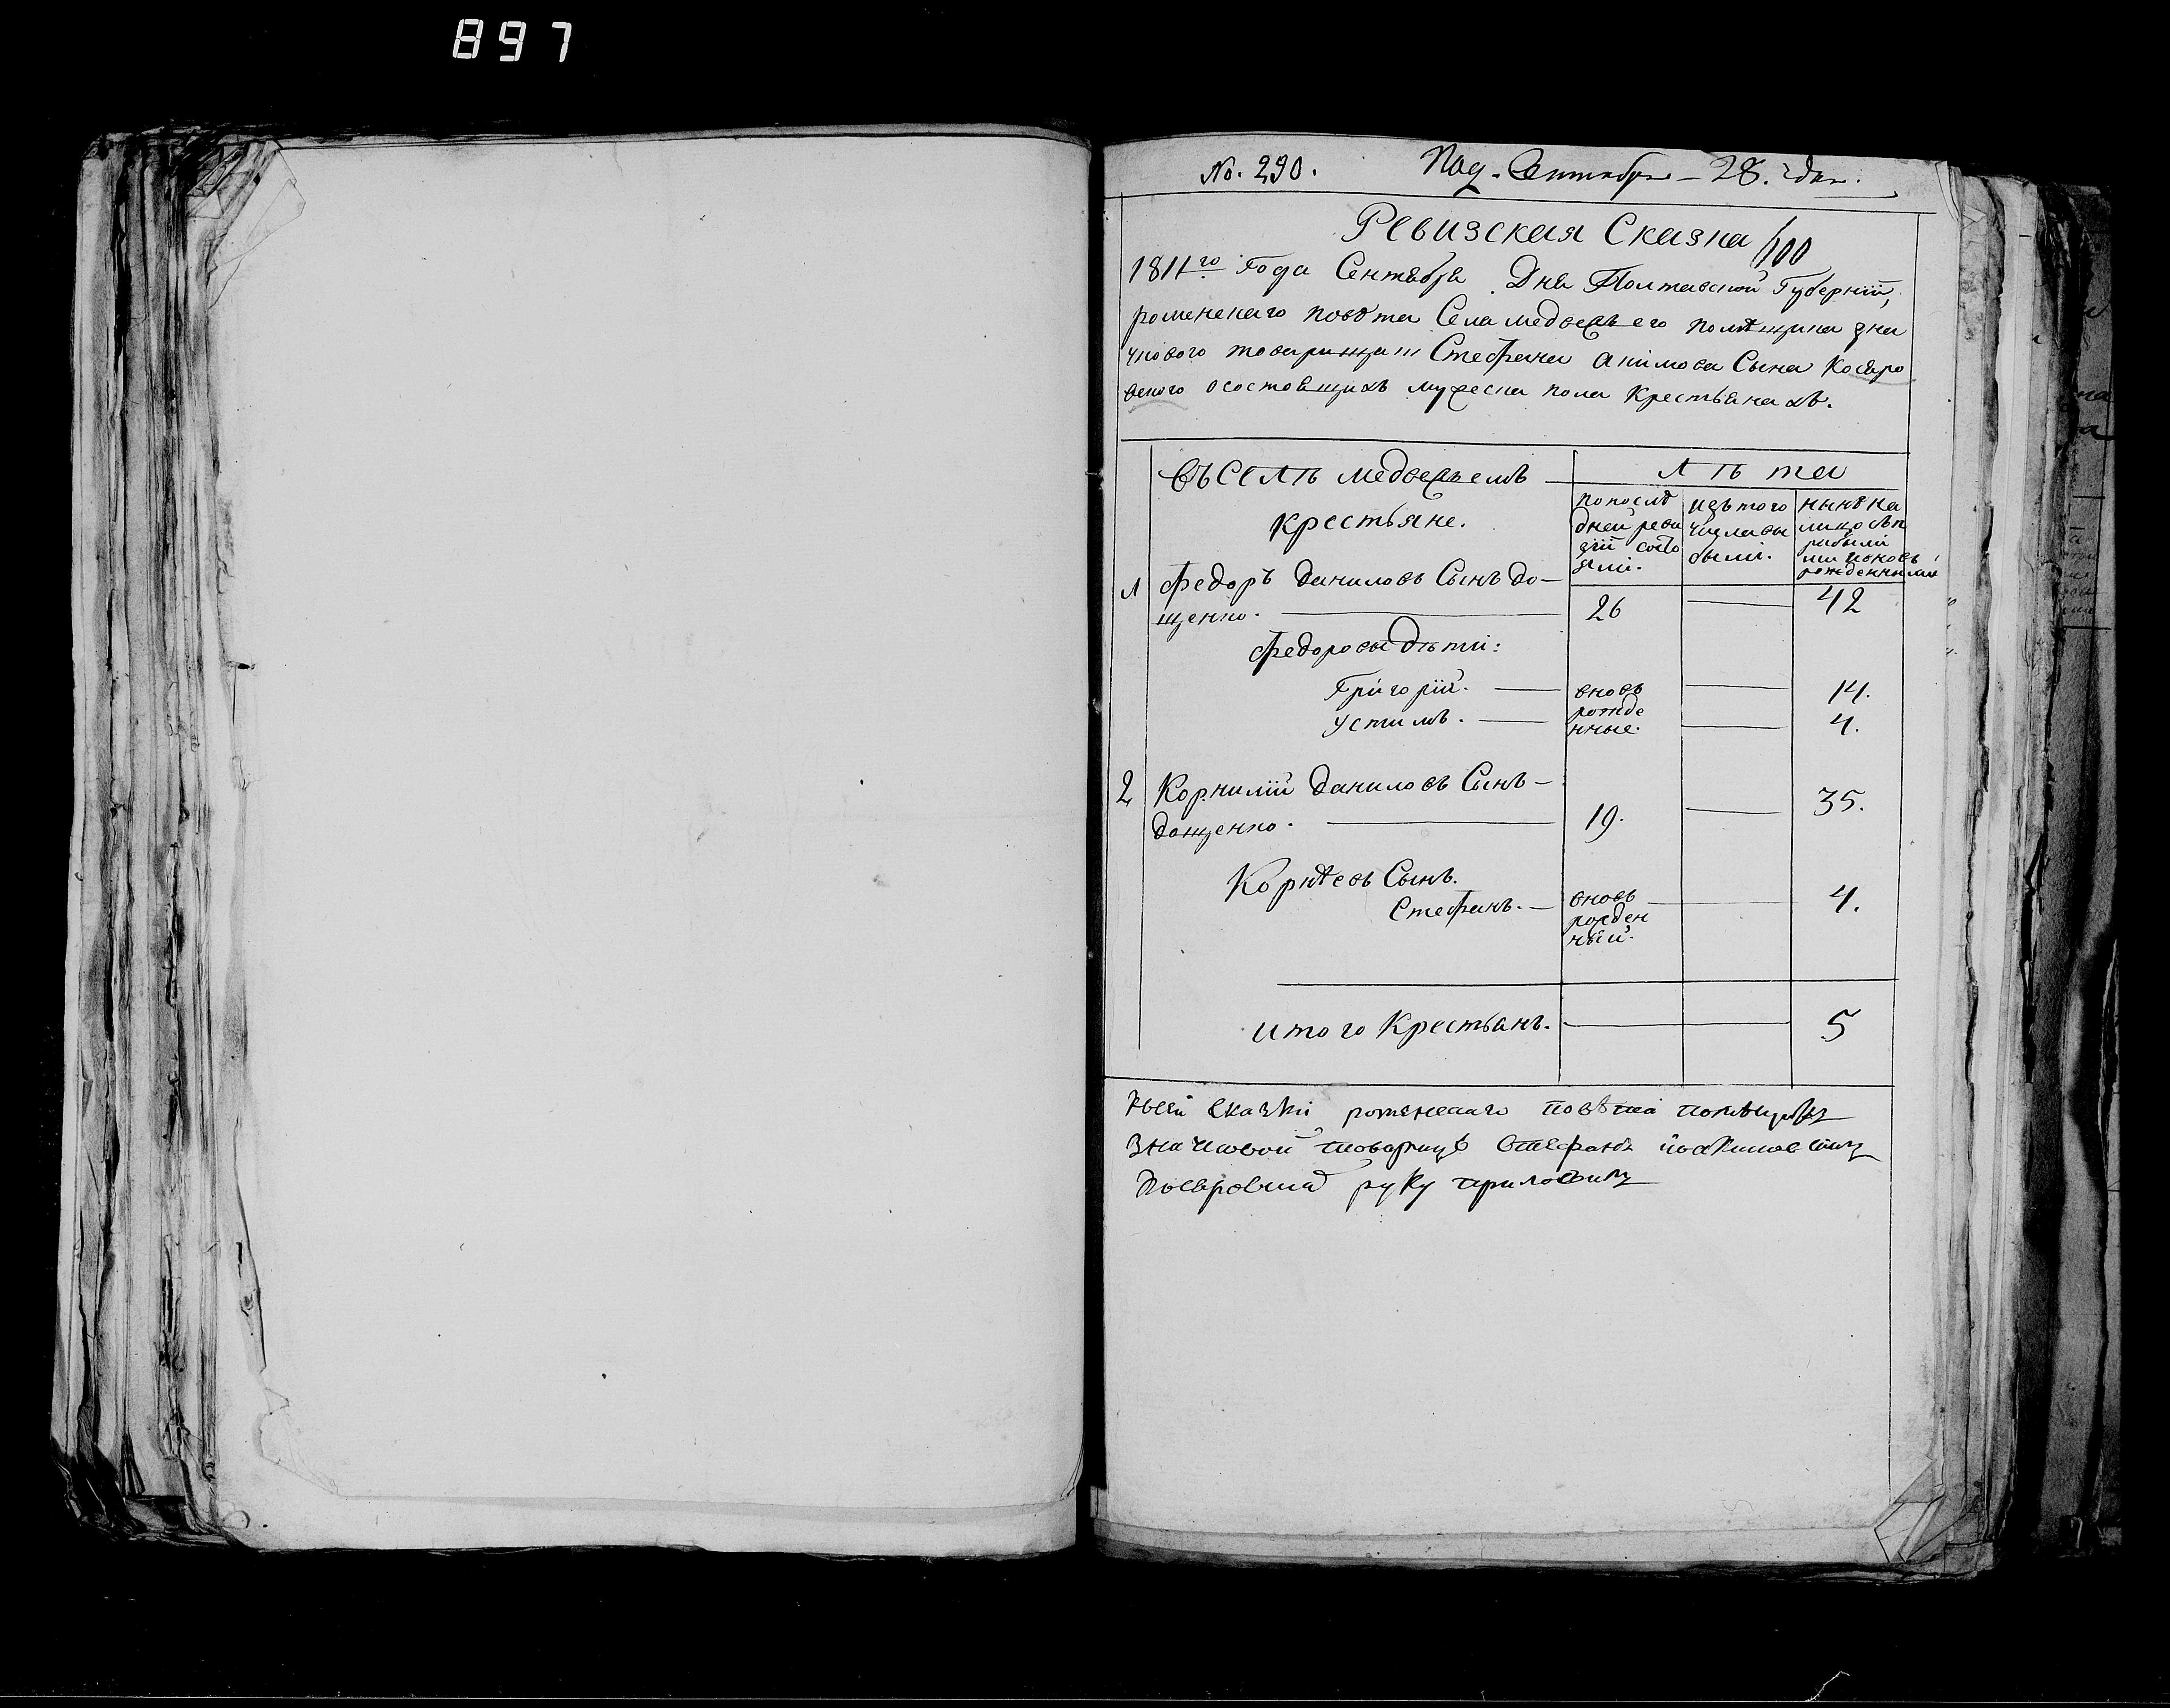 897
No. 290. Под. Сентября – 28. дня.
Ревизская Сказка
100
1811го Года Сентября Дня Полтавской Губерніи,
роменскаго повѣта Села медвежьего помѣщика зна
чкового товарища Стефана Акимова Сына Косяро
вского осостоящихъ мужеска пола Крестьянахъ.
Въ Селѣ медвежьемъ
крестьяне.
Лѣта
попослѣ
дней реви
зіи состо
яли.
изътого
числавы
были.
нынѣна
лицо съп
рибыли
ми иновь
рожденными
1 Федоръ Даниловъ Сынъ До–
щенко. 26 — 42
Федоровы дѣти:
Григорій. — вновь — 14.
Устимъ. — рожде — 4.
нные.
2 Корнилій Даниловъ Сынъ –
Дощенко. 19. — 35.
Корнѣевъ Сынъ.
Стефанъ. — вновь — 4.
рожден
ный.
итого Крестьянъ. — 5
сказки роменскаго повѣта помѣщикъ
значковой товарищъ Стефанъ
руку приложилъ